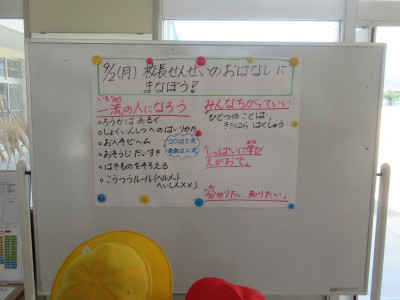 9/2(月) 校長せんせいのおはなしに
まなぼう?
いちりゅう
一流の人になろう
○ろうかは あるく
○しょくいんしつへのはいりかた
○おへそビーム
○おそうじ だいすき
○はきものをそろえる
○こうつうルール(ヘルメット
みんなちがっていい
ひとつのことば。
きたはら はくしゅう
しっぱいに学び
えがおで。
分かりたい、知りたい。